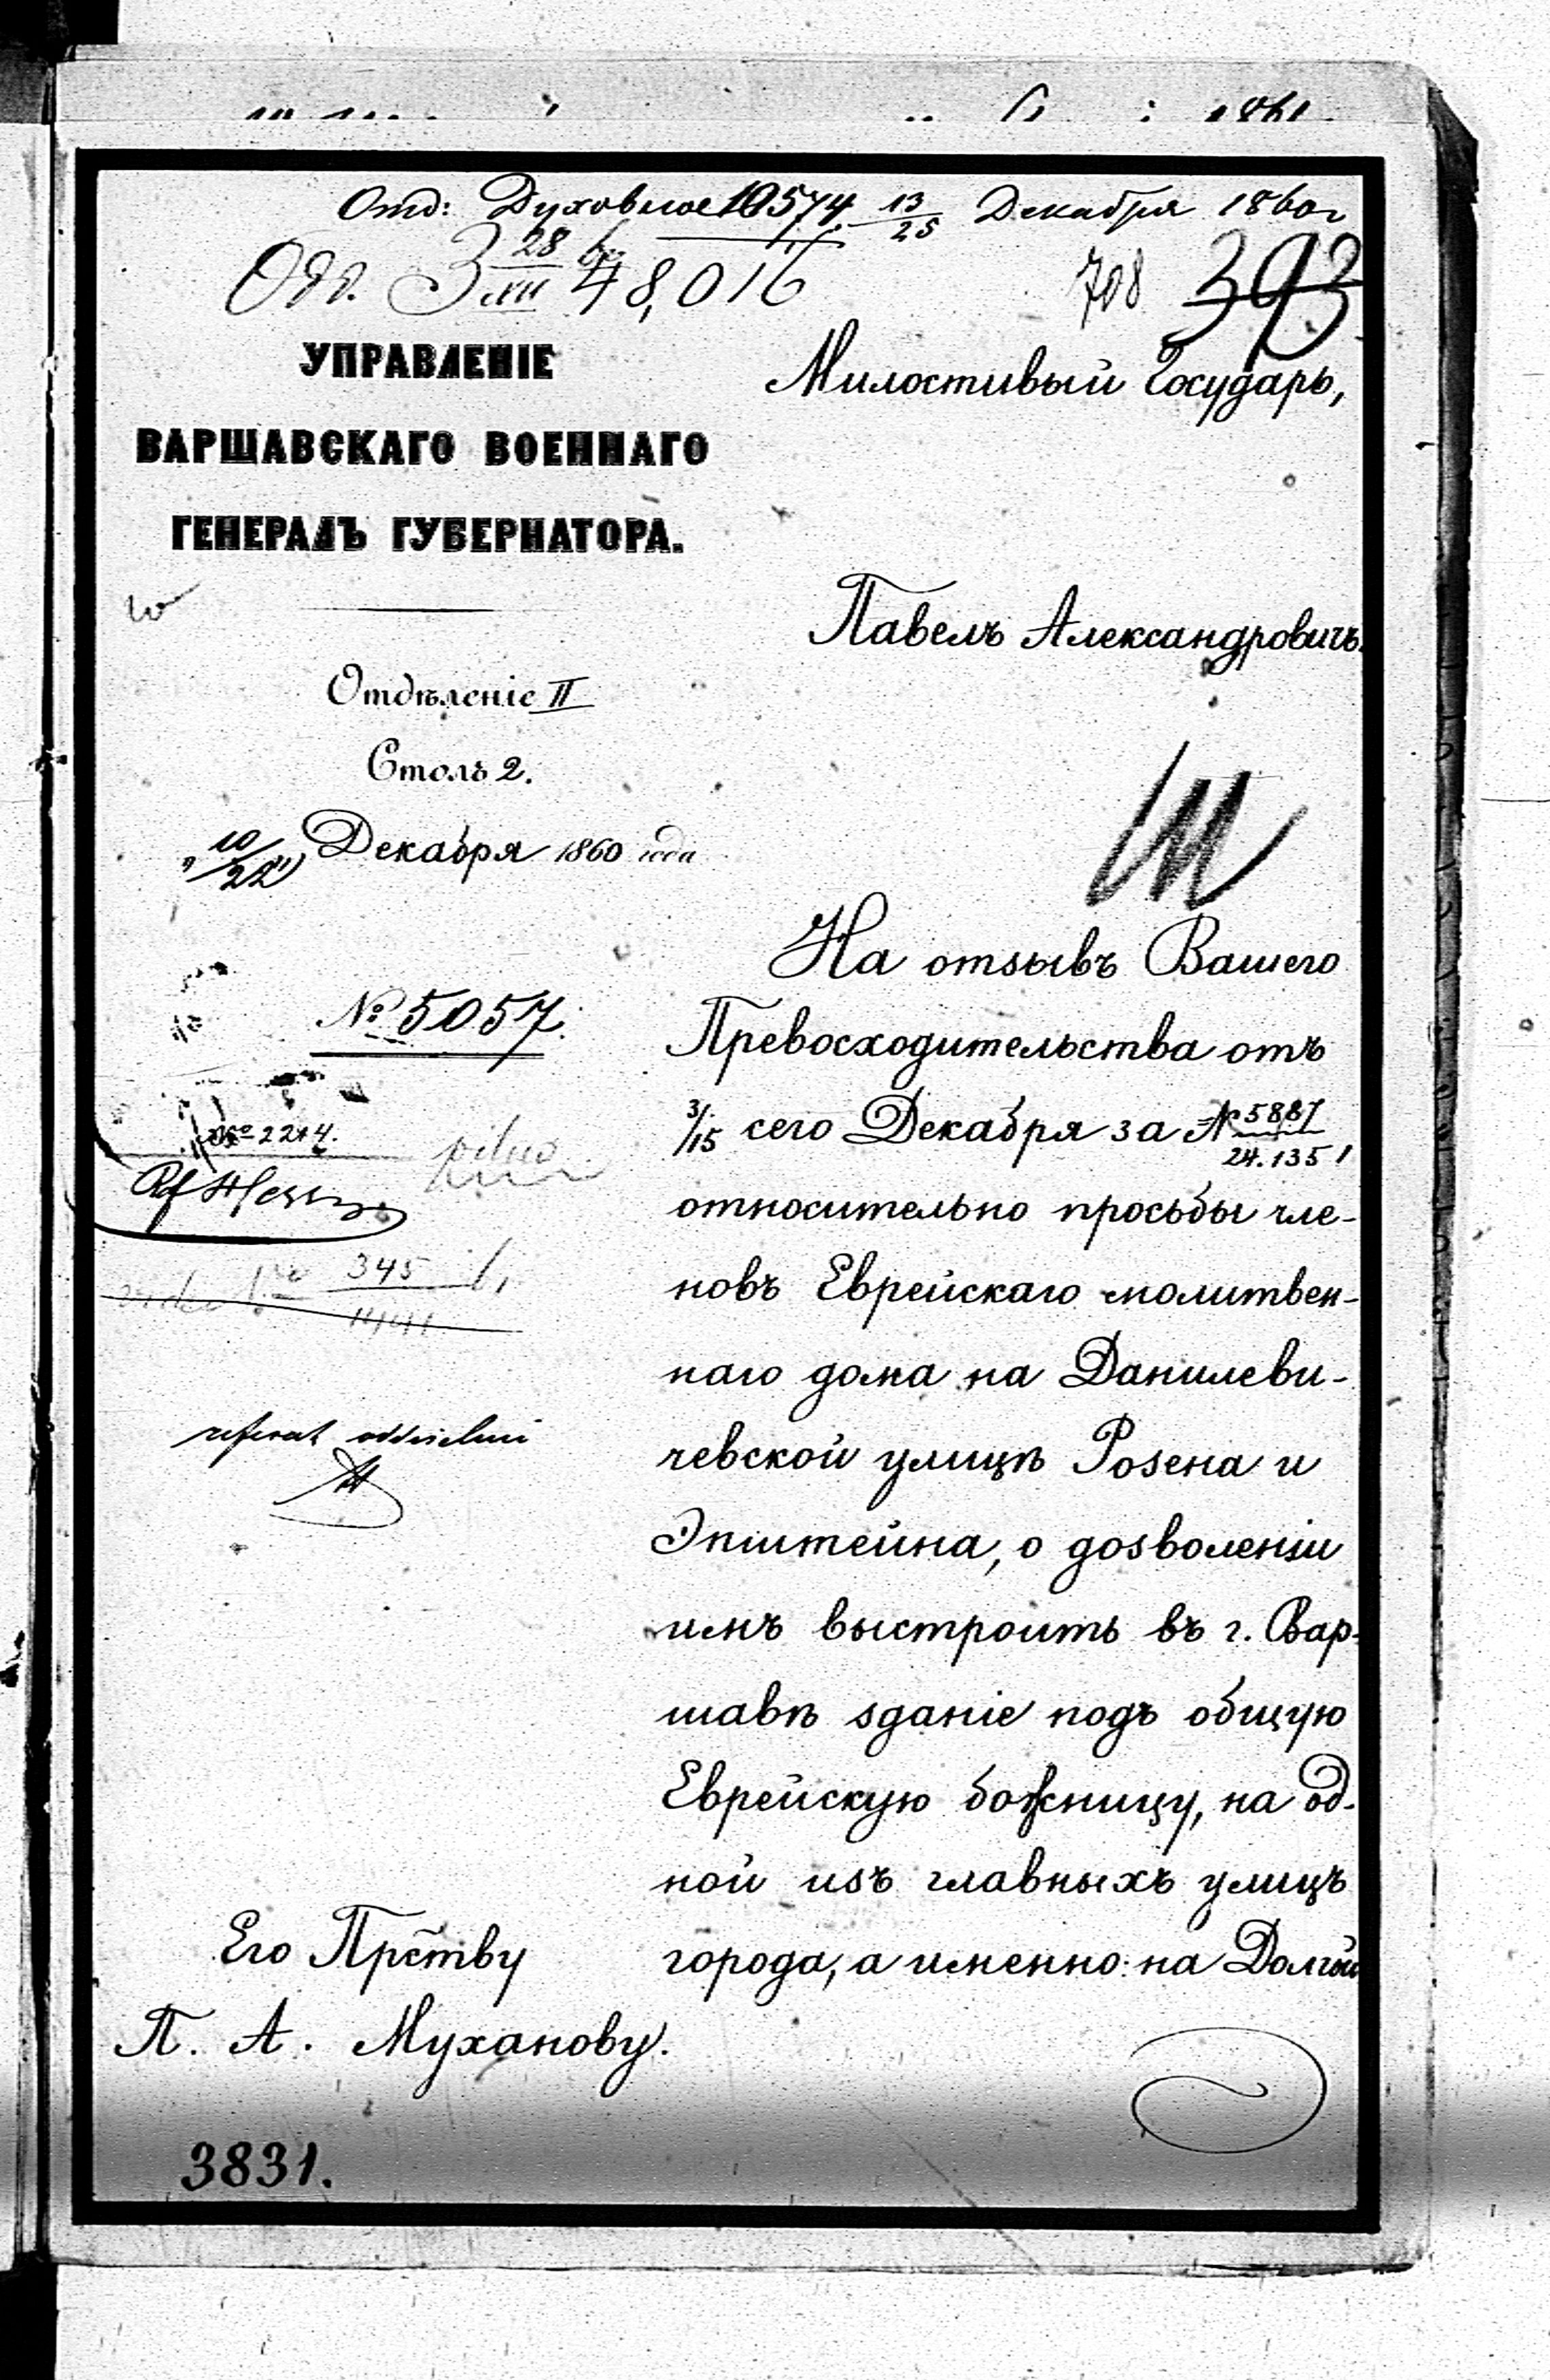 Отд: Духовное 10574. 13/25 Декабря 1860 г
Odd. 3 28/XII 48,016
708 393
УПРАВЛЕНІЕ
ВАРШАВСКАГО ВОЕННАГО
ГЕНЕРАЛЪ ГУБЕРНАТОРА.
Отдѣленіе II
Столъ 2.
„10/22" Декабря 1860 года
№ 5057.
№ 2214.
345
referat oddzielny
Милостивый Государь,
Павелъ Александровичъ.
На отзывъ Вашего
Превосходительства отъ
3/15 сего Декабря за № 5887/24.135,
относительно просьбы чле-
новъ Еврейскаго молитвен-
наго дома на Данилеви-
чевской улицѣ Розена и
Эпштейна, о дозволеніи
имъ выстроить въ г. Вар-
шавѣ зданіе подъ общую
Еврейскую божницу, на од-
ной изъ главныхъ улицъ
города, а именно: на Долгой
Его Прству
П. А. Муханову.
3831.